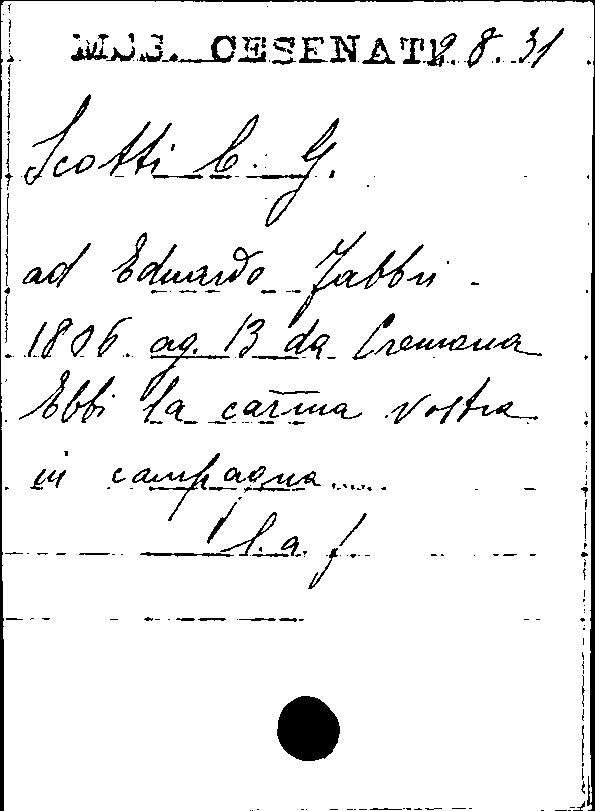 MSS. CESENATI 2. 8. 31
Scotti C. G.
ad Eduardo Fabbri -
1806 ag. 13 da Cremona
Ebbi la carma vostra
in campagna.....
l. a. f.